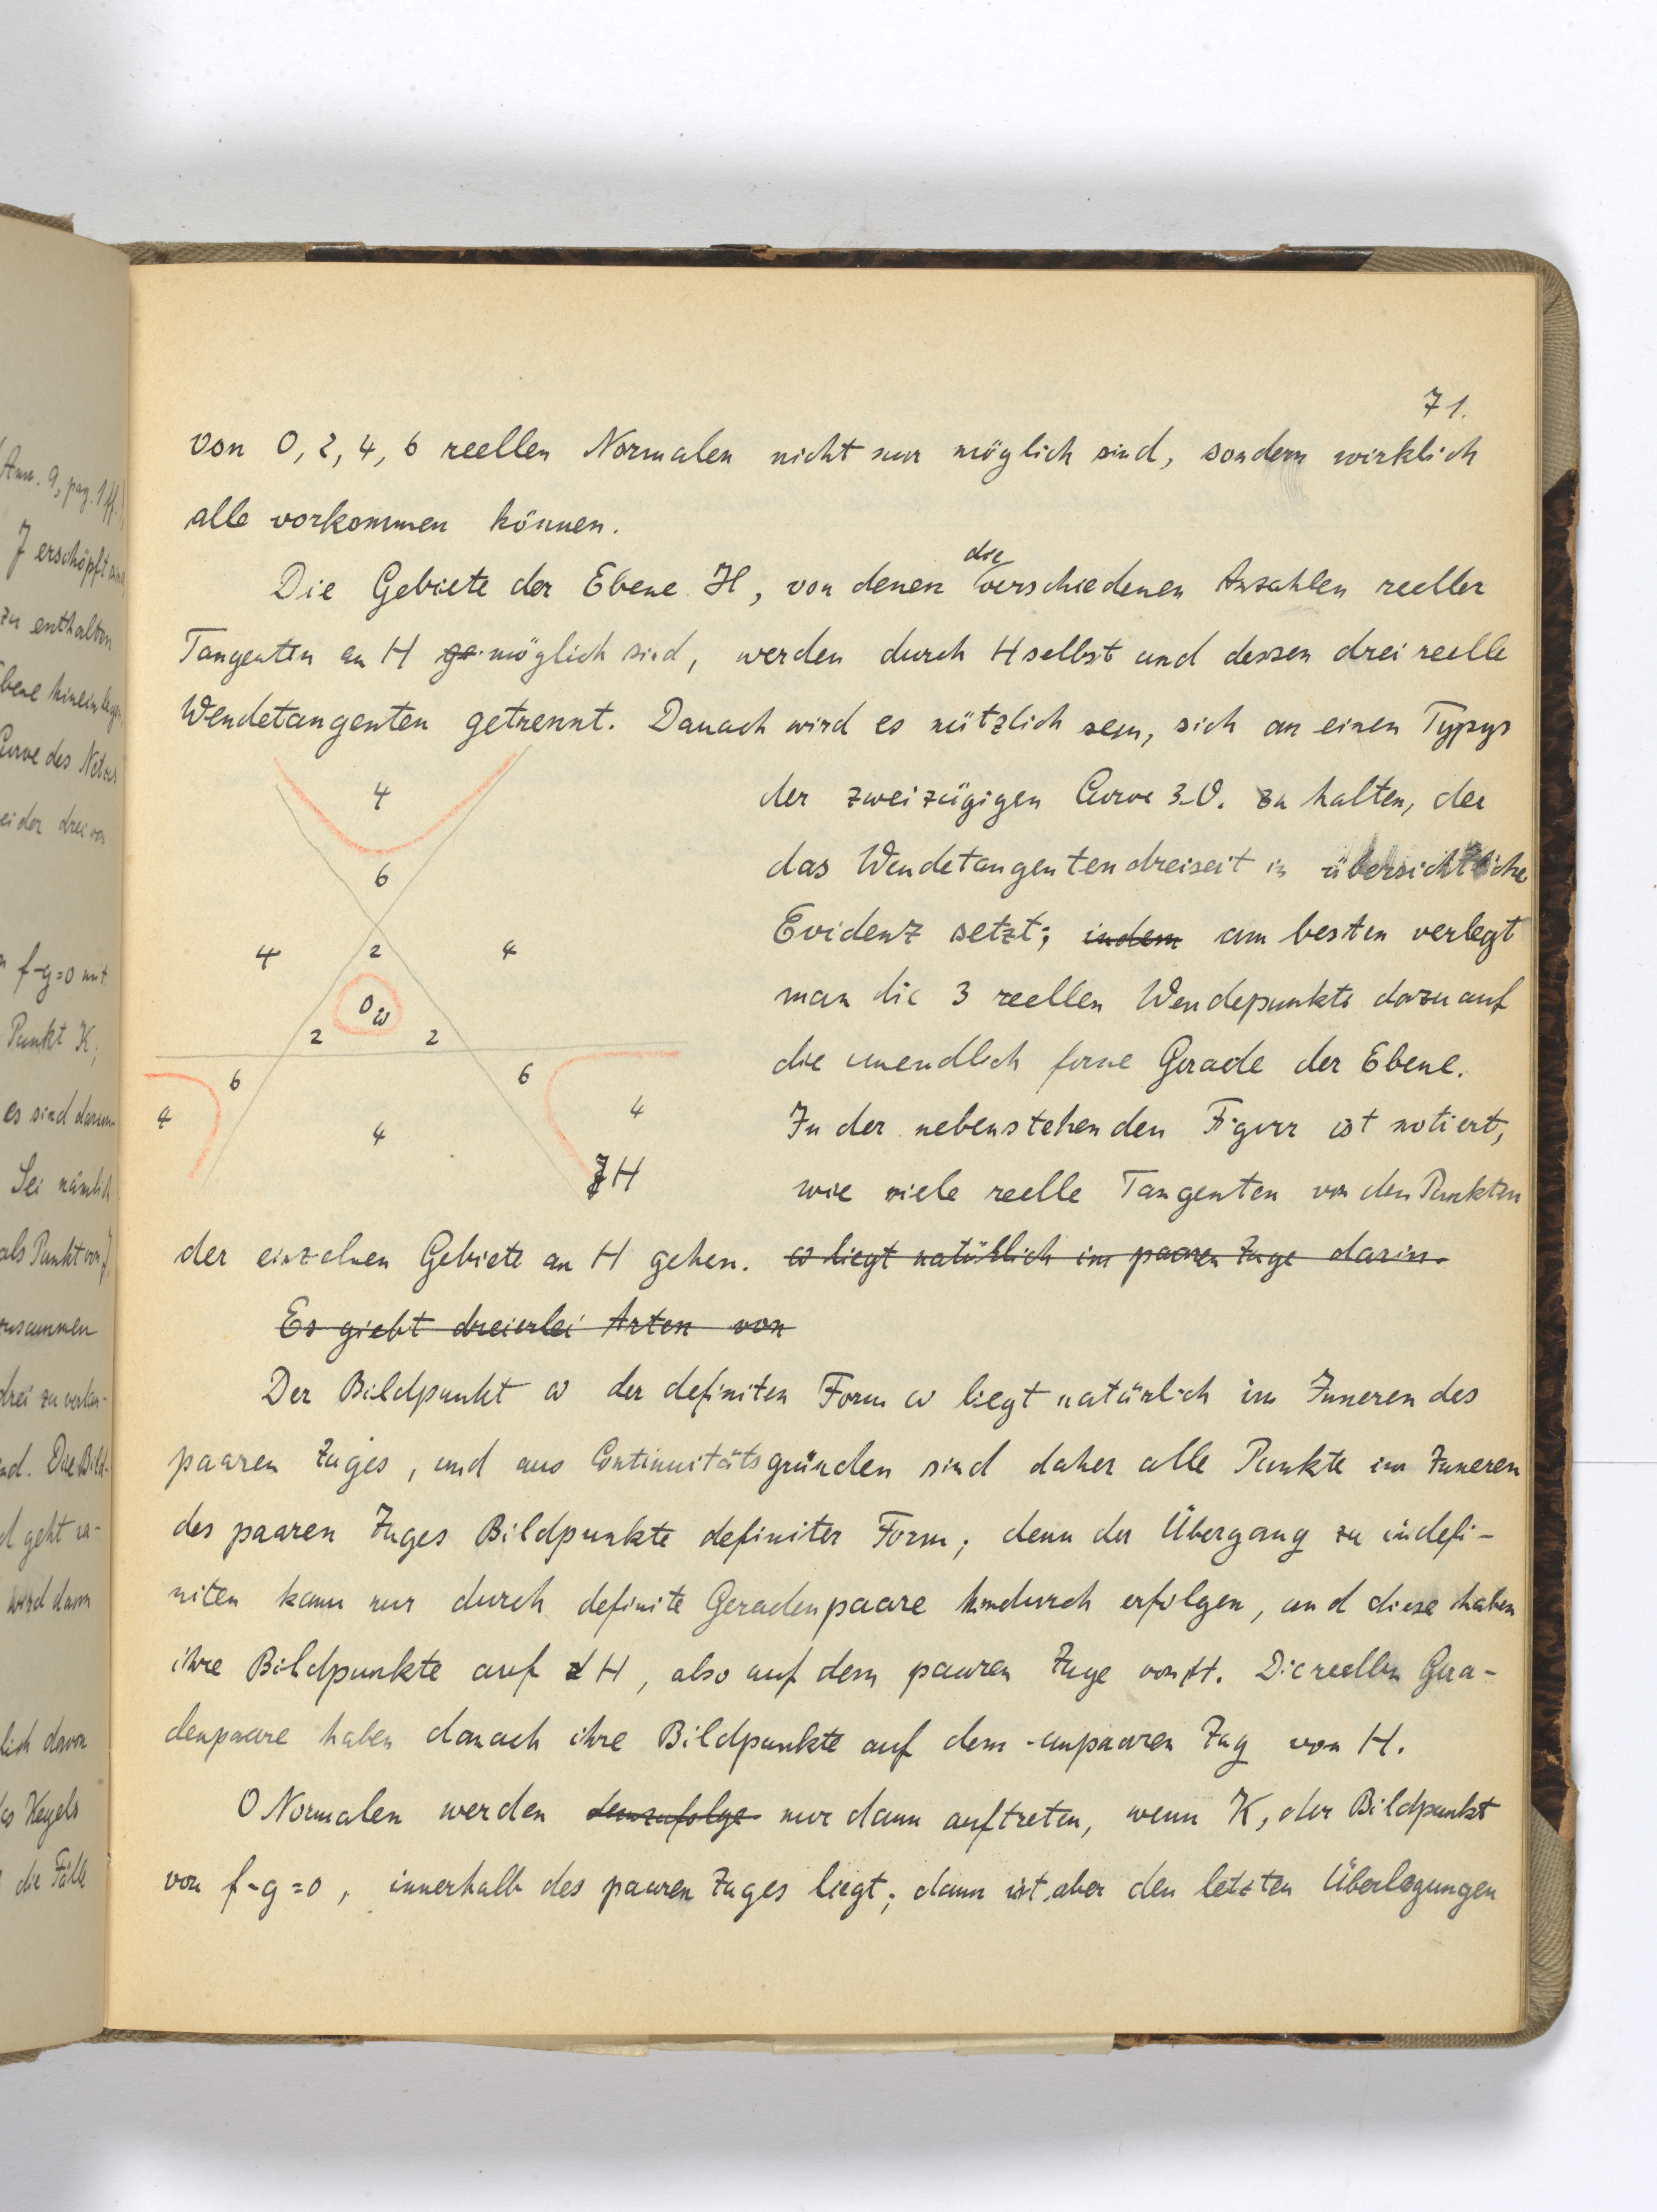 Ann. 9, pag. 1ff.
J erschöpft
zu enthalten
Curve des Netzes
f-g=0 mit
Punkt K;
es sind darum
Sei nämlich
als Punkt von J,
zusammen
drei zu
nd. Die Bild-
geht
wird dann
lich davon
des Kegels
die Fälle
71.
von 0, 2, 4, 6 reellen Normalen nicht nur möglich sind, sondern wirklich
alle vorkommen können.
Die Gebiete der Ebene H, von denen die verschiedenen Anzahlen reeller
Tangenten an H ge möglich sind, werden durch H selbst und dessen drei reelle
Wendetangenten getrennt. Danach wird es nützlich sein, sich an einen Typus
der zweizügigen Curve 3.O. zu halten, der
das Wendetangentendreiseit in übersichtliche
Evidenz setzt; indem am besten verlegt
man die 3 reellen Wendepunkte dazu auf
die unendlich ferne Gerade der Ebene.
In der nebenstehenden Figur ist notiert,
wie viele reelle Tangenten von den Punkten
4
6
4
2
4
0
ω
2
2
6
6
4
4
4
H
der einzelnen Gebiete an H gehen. ω liegt natürlich im paaren Zuge darin.
Es giebt dreierlei Arten von
Der Bildpunkt ω der definiten Form ω liegt natürlich im Inneren des
paaren Zuges, und aus Continuitätsgründen sind daher alle Punkte im Inneren
des paaren Zuges Bildpunkte definiter Form; denn der Übergang zu indefi-
niten kann nur durch definite Geradenpaare hindurch erfolgen, und diese haben
ihre Bildpunkte auf H, also auf dem paaren Zuge von H. Die reellen Gera-
denpaare haben danach ihre Bildpunkte auf dem unpaaren Zug von H.
0 Normalen werden demzufolge nur dann auftreten, wenn K, der Bildpunkt
von f-g=0, innerhalb des paaren Zuges liegt; dann ist aber den letzten Überlegungen